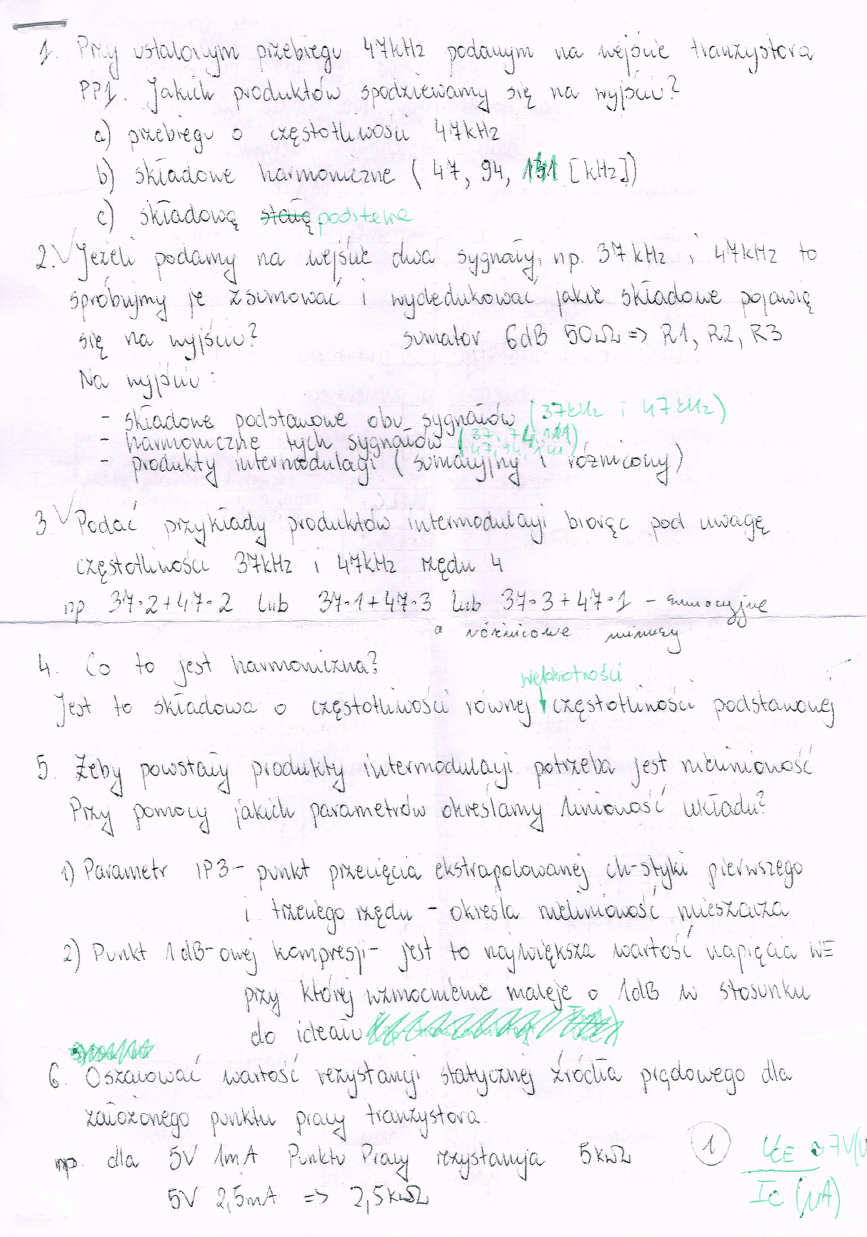 1. Przy ustalonym przebiegu 47kHz podanym na wejście tranzystora
PP1. Jakich produktów spodziewamy się na wyjściu?
a) przebiegu o częstotliwości 47kHz
b) składowe harmoniczne (47, 94, 141 [kHz])
c) składową stałą podstawe
2. √ Jeżeli podamy na wejście dwa sygnały, np. 37kHz i 47kHz to
spróbujmy je zsumować i wydedukować jakie składowe pojawią
się na wyjściu? sumator 6dB 50Ω => R1, R2, R3
Na wyjściu:
- składowe podstawowe obu sygnałów (37kHz i 47kHz)
- harmoniczne tych sygnałów (37, 74, 111) 47, 94, 141
- produkty intermodulacji (sumacyjny i różnicowy)
3 √ Podać przykłady produktów intermodulacji biorąc pod uwagę
częstotliwości 37kHz i 47kHz rzędu 4
np 37·2+47·2 lub 37·1+47·3 lub 37·3+47·1 - sumacyjne
a różnicowe minusy
4. Co to jest harmoniczna?
wielokrotności
Jest to składowa o częstotliwości równej częstotliwości podstawowej
5. Żeby powstały produkty intermodulacji potrzeba jest nieliniowość
Przy pomocy jakich parametrów określamy liniowość układu?
1) Parametr IP3- punkt przecięcia ekstrapolowanej ch-styki pierwszego
i trzeciego rzędu - określa nieliniowość mieszacza
2) Punkt 1dB-owej kompresji- jest to największa wartość napięcia WE
przy której wzmocnienie maleje o 1dB w stosunku
do ideału
6. Oszacować wartość rezystancji statycznej źródła prądowego dla
założonego punktu pracy tranzystora.
np. dla 5V 1mA Punktu Pracy rezystancja 5kΩ
5V 2,5mA => 2,5kΩ
1
UCE ≈ 7V
IC (mA)